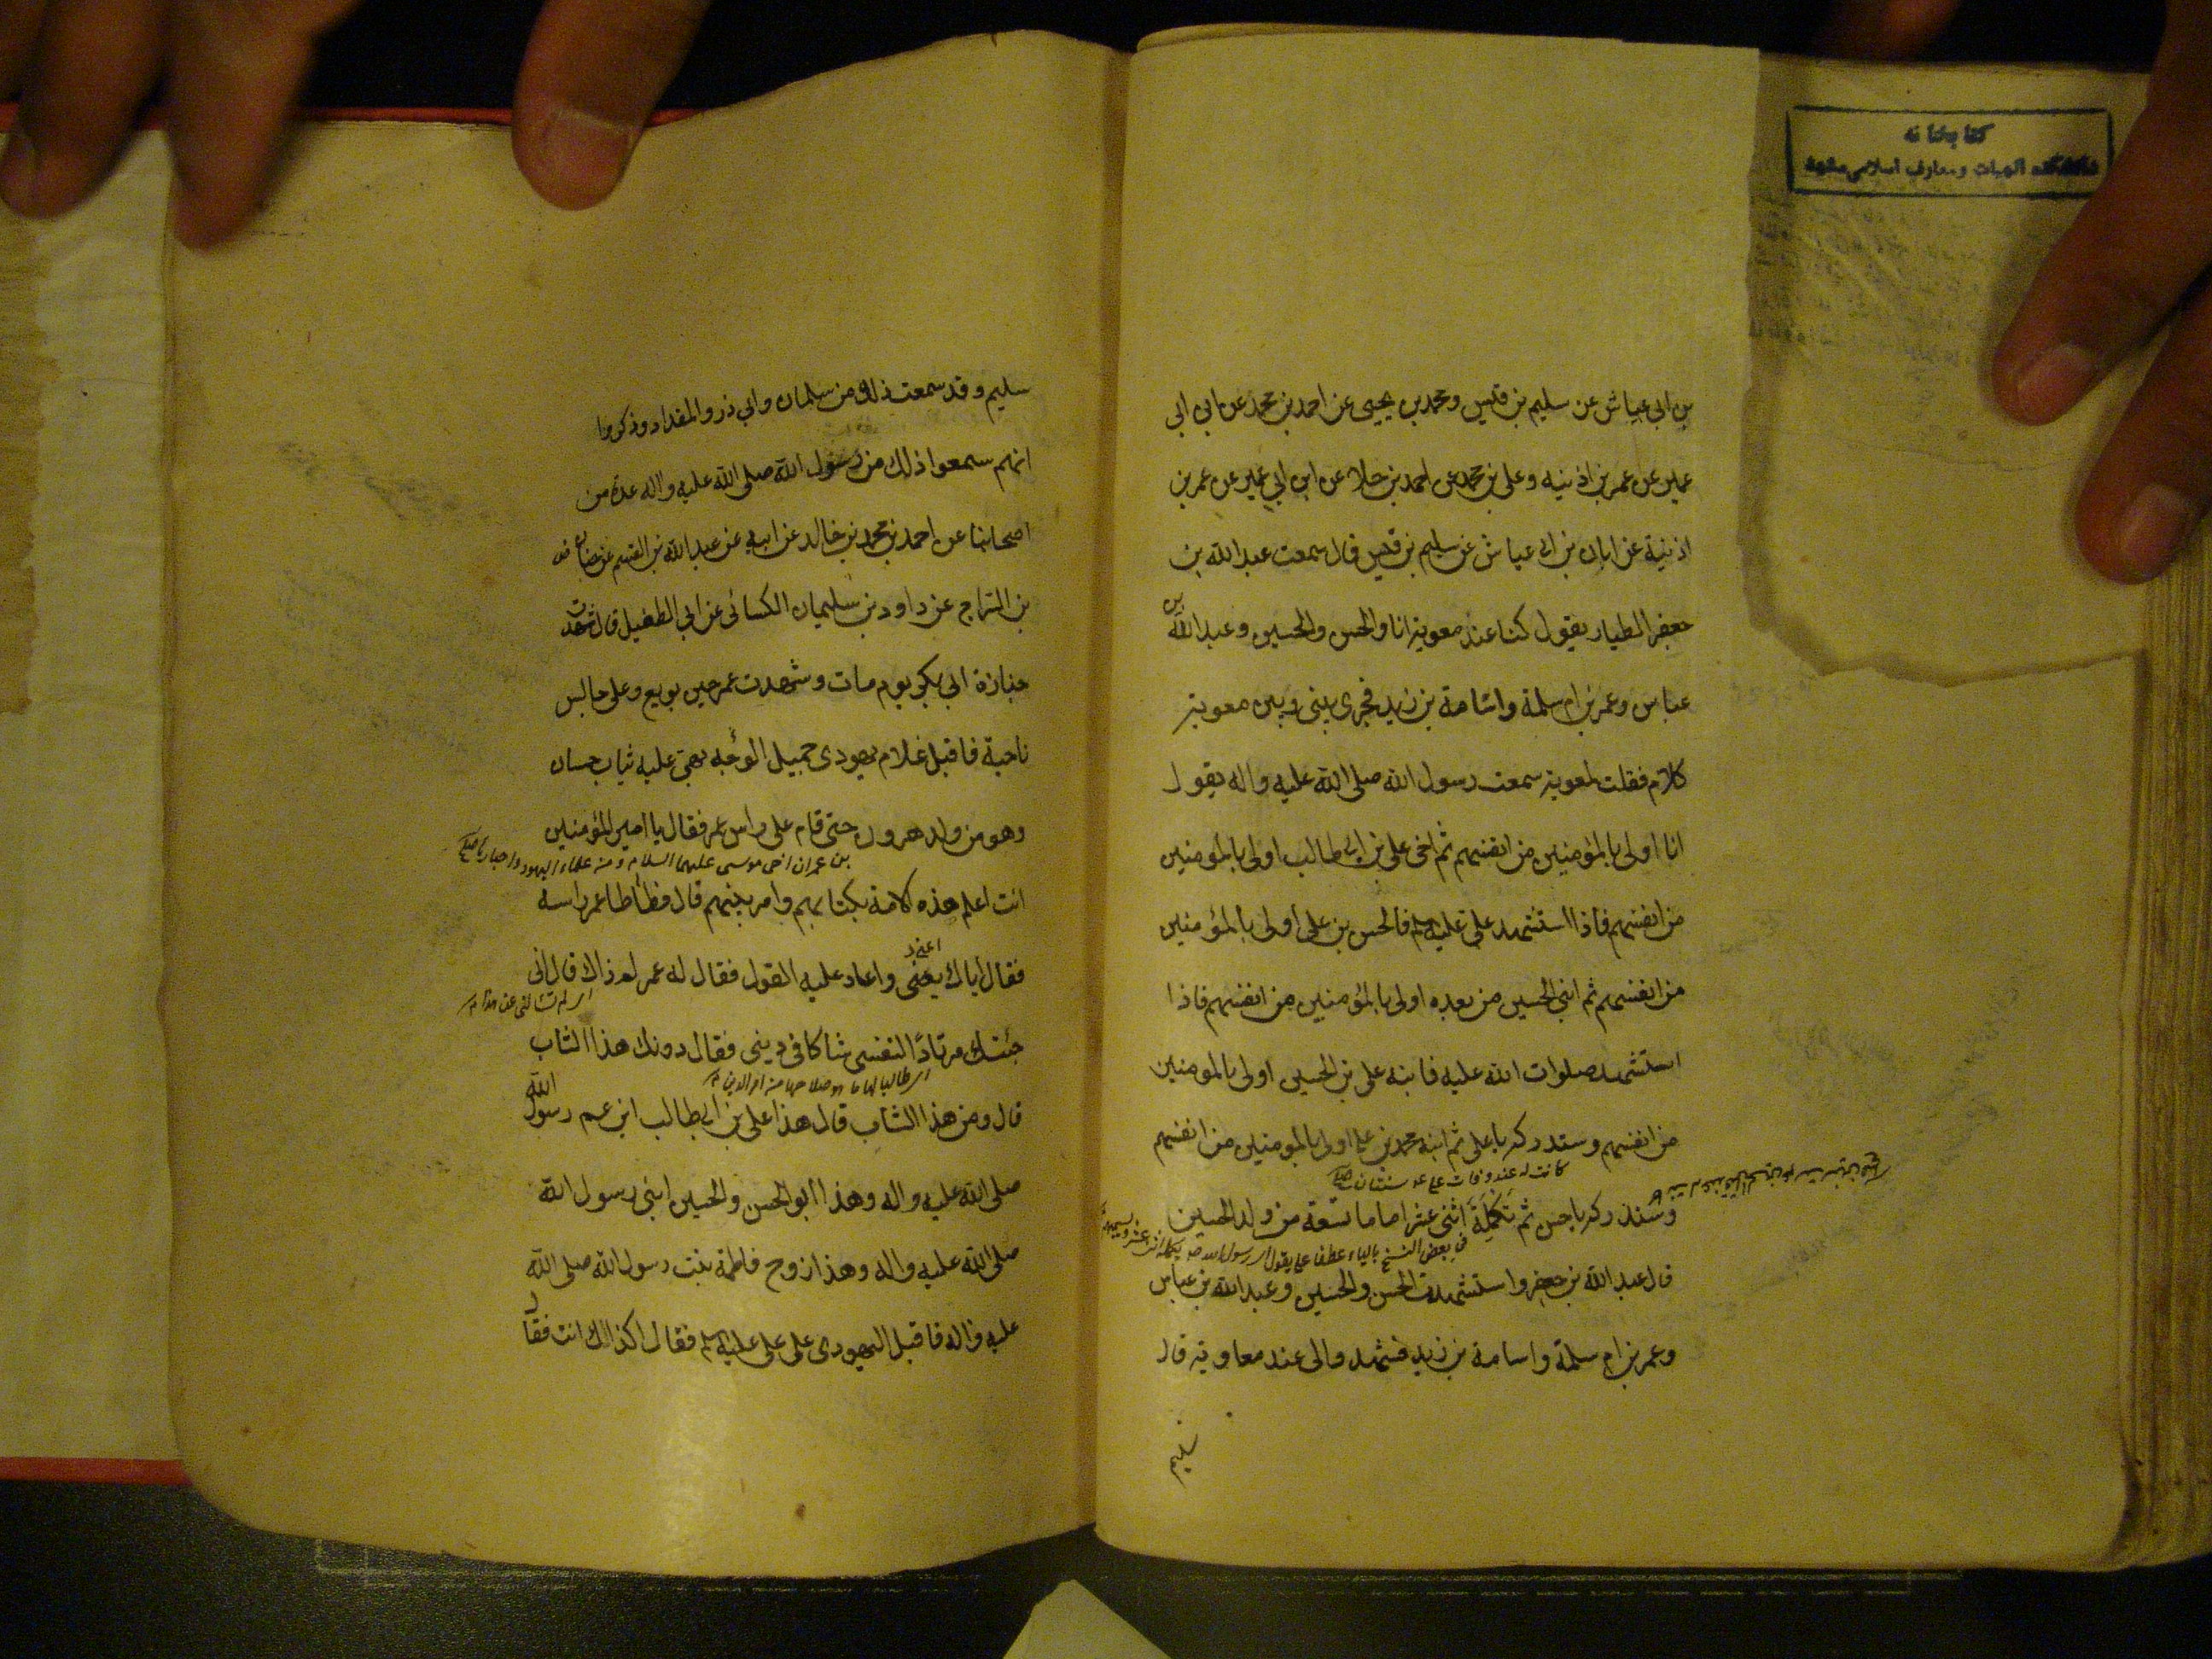 كتابخانه
دانشكده الهيات و معارف اسلامى مشهد
بن ابى عياش عن سليم بن قيس ومحمد بن يحيى عن احمد بن محمد عن ابى ابى
عمير عن عمر بن اذينه وعلى بن محمد عن احمد بن هلال عن ابن ابى عمير عن عمر بن
اذينة عن ابان بن ابى عياش عن سليم بن قيس قال سمعت عبد الله بن
جعفر الطيار يقول كنا عند معوية انا والحسن والحسين وعبد الله بن
عباس وعمر بن ام سلمة واسامة بن زيد فجرى بينى وبين معوية
كلام فقلت لمعوية سمعت رسول الله صلى الله عليه واله يقول
انا اولى بالمؤمنين من انفسهم ثم اخى على بن ابى طالب اولى بالمؤمنين
من انفسهم فاذا استشهد على عليه فالحسن بن على اولى بالمؤمنين
من انفسهم ثم ابنى الحسين من بعده اولى بالمؤمنين من انفسهم فاذا
استشهد صلوات الله عليه فابنه على بن الحسين اولى بالمومنين
من انفسهم وستدركه يا على ثم ابنه محمد بن على اولى بالمومنين من انفسهم
كانت له عند وفات على ع سنتان
وستدركه يا حسين ثم تكملة اثنى عشر اماما تسعة من ولد الحسين
فى بعض النسخ بالياء عطفا على يقول اى رسول الله ص يكمله اثنى عشر
قال عبد الله بن جعفر واستشهدت الحسن والحسين وعبد الله بن عباس
وعمر بن ام سلمة واسامة بن زيد فشهدوا لى عند معاوية قال
سليم
سليم وقد سمعت ذلك من سلمان وابى ذر والمقداد وذكروا
انهم سمعوا ذلك من رسول الله صلى الله عليه واله عدة من
اصحابنا عن احمد بن محمد بن خالد عن ابيه عن عبد الله بن القسم عن
بن السراج عن داود بن سليمان الكسائى عن ابى الطفيل قال شهدت
جنازة ابى بكر يوم مات وشهدت عمر حين بويع وعلى جالس
ناحية فاقبل غلام يهودى جميل الوجه بهى عليه ثياب حسان
وهو من ولد هرون حتى قام على راس عمر فقال يا امير المؤمنين
بن عمران اخى موسى عليهما السلام ومن علماء اليهود واحبارها
انت اعلم هذه الامة بكتابهم وامر نبيهم قال فطأطا عمر راسه
فقال اياك يعنى واعاد عليه القول فقال له عمر لم ذاك قال انى
اعنى
اى لم تسألنى عن هذا
جئتك مرتادا لنفسى شاكا فى دينى فقال دونك هذا الشاب
اى طالبا لها ما هو صلاحها من امر الدين
قال ومن هذا الشاب قال هذا على بن ابى طالب ابن عم رسول الله
صلى الله عليه واله وهذا ابو الحسن والحسين ابنى رسول الله
صلى الله عليه واله وهذا زوج فاطمة بنت رسول الله صلى الله
عليه واله فاقبل اليهودى على على عليه السلم فقال اكذالك انت فقال